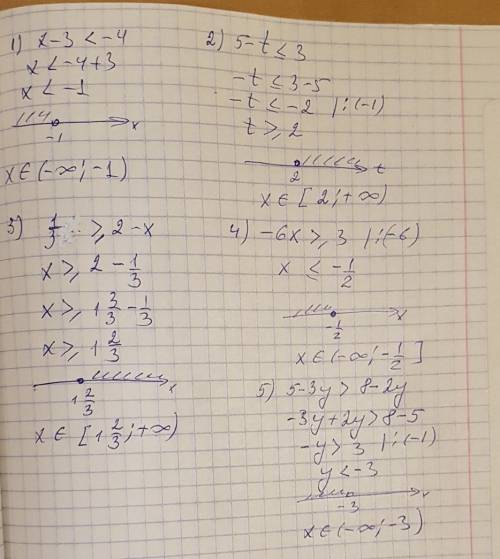 1) x-3 < -4
x < -4+3
x < -1
-1 x
x ∈ (-∞; -1)
2) 5-t ≤ 3
-t ≤ 3-5
-t ≤ -2 |:(-1)
t ≥ 2
2 t
x ∈ [2; +∞)
3) 1/3 ≥ 2-x
x ≥ 2 - 1/3
x ≥ 1 3/3 - 1/3
x ≥ 1 2/3
1 2/3 x
x ∈ [1 2/3; +∞)
4) -6x ≥ 3 |:(-6)
x ≤ -1/2
-1/2 x
x ∈ (-∞; -1/2]
5) 5-3y > 8-2y
-3y+2y > 8-5
-y > 3 |:(-1)
y < -3
-3
x ∈ (-∞; -3)